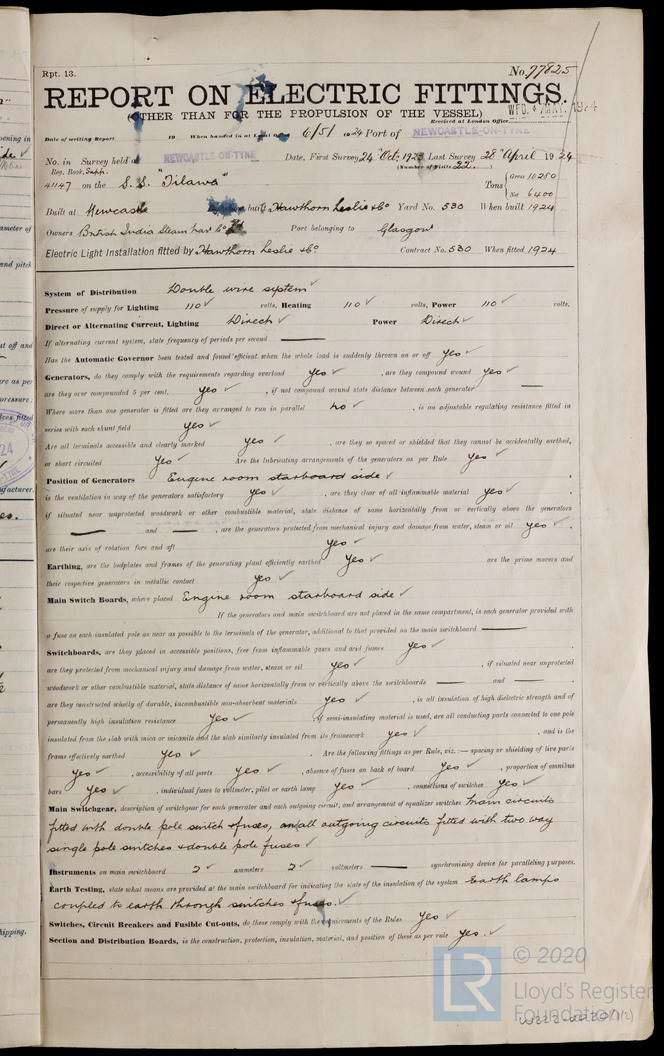 Rpt. 13.
No. 77825
REPORT ON ELECTRIC FITTINGS.
(OTHER THAN FOR THE PROPULSION OF THE VESSEL)
Received at London Office WED. 7 MAY. 1924
Date of writing Report 19 When handed in at Local Office 6/5/ 1924 Port of NEWCASTLE-ON-TYNE
No. in Survey held at NEWCASTLE-ON-TYNE Date, First Survey 24th Oct, 1923 Last Survey 28th April 1924
Reg. Book. Supp. (Number of Visits 22.)
41147 on the S.S. "Tilawa" Tons { Gross 10280
Net 6400
Built at Newcastle By whom built Hawthorn Leslie & Co Yard No. 530 When built 1924
Owners British India Steam Nav. Co Ltd Port belonging to Glasgow
Electric Light Installation fitted by Hawthorn Leslie & Co Contract No. 530 When fitted 1924
System of Distribution Double wire system ✓
Pressure of supply for Lighting 110 ✓ volts, Heating 110 ✓ volts, Power 110 ✓ volts.
Direct or Alternating Current, Lighting Direct ✓ Power Direct ✓
If alternating current system, state frequency of periods per second —
Has the Automatic Governor been tested and found efficient when the whole load is suddenly thrown on or off yes ✓
Generators, do they comply with the requirements regarding overload yes ✓ , are they compound wound yes ✓
are they over compounded 5 per cent. yes ✓ , if not compound wound state distance between each generator —
Where more than one generator is fitted are they arranged to run in parallel no ✓ , is an adjustable regulating resistance fitted in
series with each shunt field yes ✓
Are all terminals accessible and clearly marked yes ✓ , are they so spaced or shielded that they cannot be accidentally earthed,
or short circuited yes ✓ Are the lubricating arrangements of the generators as per Rule yes ✓
Position of Generators Engine room starboard side ✓
is the ventilation in way of the generators satisfactory yes ✓ , are they clear of all inflammable material yes ✓
if situated near unprotected woodwork or other combustible material, state distance of same horizontally from or vertically above the generators
— and — , are the generators protected from mechanical injury and damage from water, steam or oil yes ✓ ,
are their axis of rotation fore and aft yes ✓
Earthing, are the bedplates and frames of the generating plant efficiently earthed yes ✓ are the prime movers and
their respective generators in metallic contact yes ✓
Main Switch Boards, where placed Engine room starboard side ✓
If the generators and main switchboard are not placed in the same compartment, is each generator provided with
a fuse on each insulated pole as near as possible to the terminals of the generator, additional to that provided on the main switchboard —
Switchboards, are they placed in accessible positions, free from inflammable gases and acid fumes yes ✓ ,
are they protected from mechanical injury and damage from water, steam or oil yes ✓ , if situated near unprotected
woodwork or other combustible material, state distance of same horizontally from or vertically above the switchboards — and — ,
are they constructed wholly of durable, incombustible non-absorbent materials yes ✓ , is all insulation of high dielectric strength and of
permanently high insulation resistance yes ✓ , if semi-insulating material is used, are all conducting parts connected to one pole
insulated from the slab with mica or micanite and the slab similarly insulated from its framework yes ✓ , and is the
frame effectively earthed yes ✓ . Are the following fittings as per Rule, viz.:— spacing or shielding of live parts
yes ✓ , accessibility of all parts yes ✓ , absence of fuses on back of board yes ✓ , proportion of omnibus
bars yes ✓ , individual fuses to voltmeter, pilot or earth lamp yes ✓ , connections of switches yes ✓
Main Switchgear, description of switchgear for each generator and each outgoing circuit, and arrangement of equalizer switches Main circuits
fitted with double pole switch & fuses, and all outgoing circuits fitted with two way
single pole switches & double pole fuses ✓
Instruments on main switchboard 2 ✓ ammeters 2 ✓ voltmeters — synchronising device for paralleling purposes.
Earth Testing, state what means are provided at the main switchboard for indicating the state of the insulation of the system Earth lamps
coupled to earth through switches & fuses. ✓
Switches, Circuit Breakers and Fusible Cut-outs, do these comply with the requirements of the Rules yes ✓
Section and Distribution Boards, is the construction, protection, insulation, material, and position of these as per rule yes. ✓
© 2020
LR
Lloyd's Register
Foundation
W222-0220(1/2)